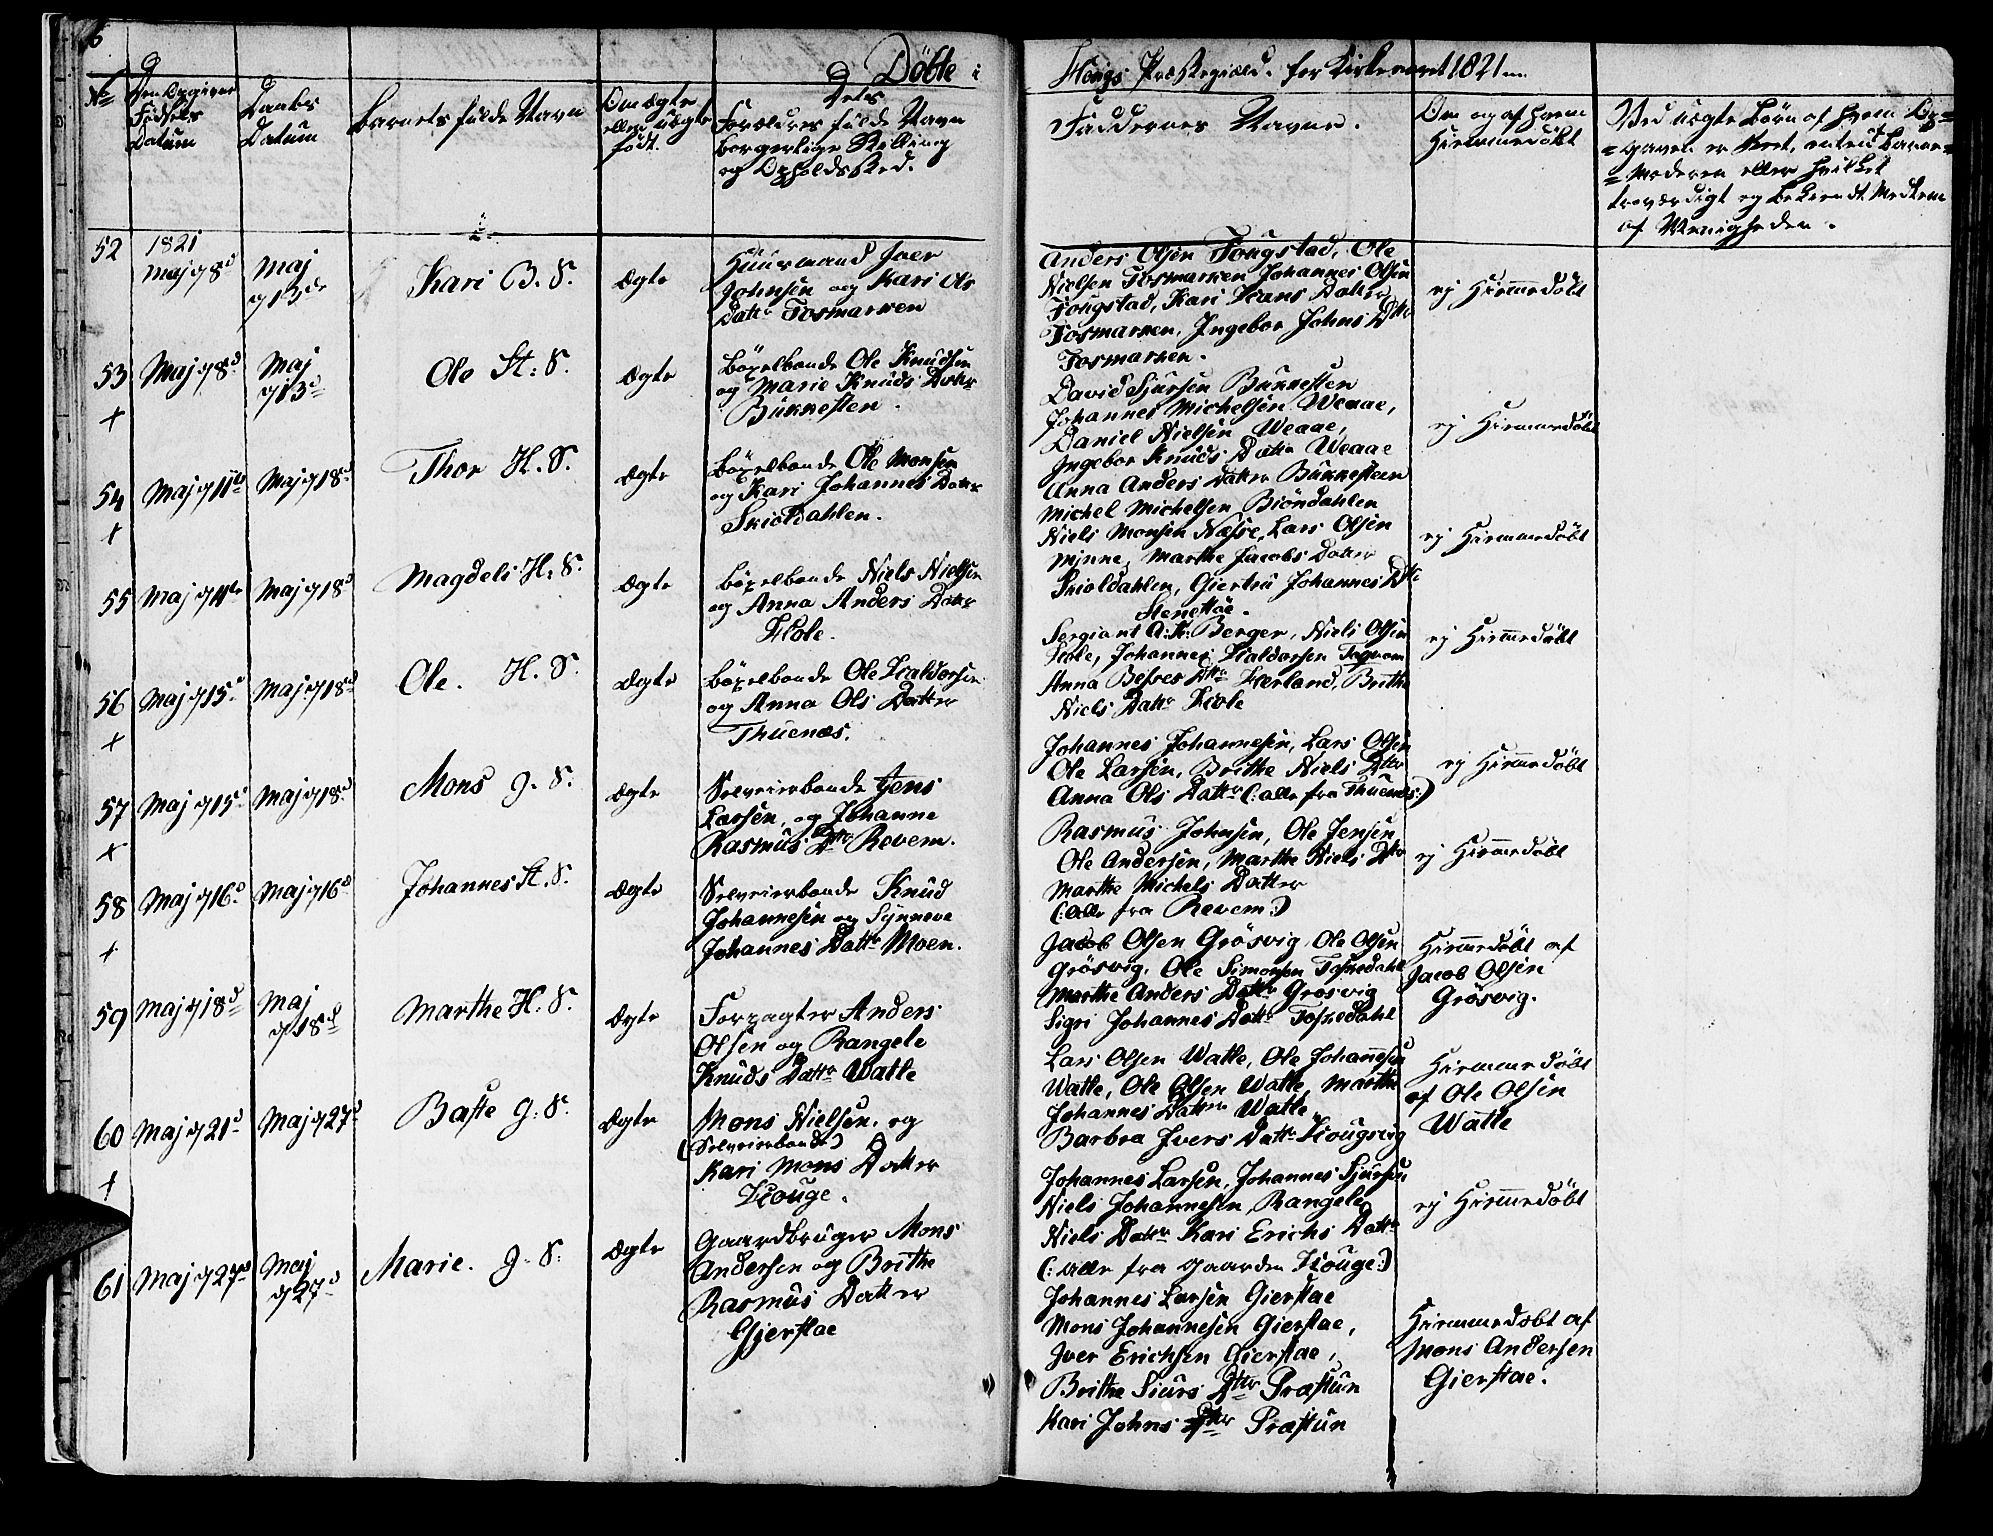 6
Döbte i
Hougs Præstegield for Kirkeaaret 1821
No
Den Opgivne
Födsels
Datum
Daabs
Datum
Barnets fulde Navn
Om Ægte
eller uægte
født.
Dets
Forældres fulde Navn
borgerlige Stilling
og Opholdssted.
Faddernes Navne.
Om og af hvem
Hiemmedöbt
Ved uægte Börn af hvem Op=
=gaven er skeet, enten Barne=
=Moderen eller hvilket
troværdigt og bekiendt Medlem
af Menigheden.
52
1821
Maj 8d
Maj
13de
Kari B. S.
Ægte
Huusmand Iver
Johnsen og Kari Ols
Dattr Fosmarken
Anders Olsen Fougstad, Ole
Nielsen Fosmarken Johannes Olsen
Fougstad, Kari Hans Datter
Fosmarken, Ingebor Johns Dttr
Fosmarken.
ej Hiemmedöbt
53
+
Maj 8d
Maj
13d
Ole St. S.
Ægte
Böxelbonde Ole Knudsen
og Marie Knuds Datter
Bunnesten.
David Sjursen Bunnesten
Johannes Michelsen Weaae,
Daniel Nielsen Weaae,
Ingebor Knuds Datter Weaae
Anna Anders Datter Bunnesteen
ej Hiemmedöbt
54
+
Maj 11te
Maj 18d
Thor H. S.
Ægte
Böxelbonde Ole Monsen
og Kari Johannes Datter
Skioldahlen.
Michel Michelsen Biöndahlen
Niels Monsen Næsse, Lars Olsen
Minne, Marthe Jacobs Datter
Skioldahlen, Giertru Johannes Dttr
Stenestöe.
ej Hiemmedöbt
55
Maj 11te
Maj 18d
Magdeli H. S.
Ægte
Böxelbonde Niels Nielsen
og Anna Anders Datter
Hole.
Sergiant A: K: Berger, Niels Olsen
Hole, Johannes Haldorsen
Anna Besses Dttr Herland, Brithe
Niels Dattr Hole
ej Hiemmedöbt
56
+
Maj 15d
Maj 18d
Ole. H. S.
Ægte
Böxelbonde Ole Haldorsen
og Anna Ols Datter
Thuenæs.
Johannes Johannesen, Lars Olsen
Ole Larsen, Brithe Niels Dttr
Anna Ols Dattr (: alle fra Thuenæs:)
ej Hiemmedöbt
57
+
Maj 15d
Maj 18d
Mons g. S.
Ægte
Selveierbonde Jens
Larsen, og Johanne
Rasmus Dttr Revem.
Rasmus Johnsen, Ole Jensen
Ole Andersen, Marthe Niels Dttr
Marthe Michels Datter
(: alle fra Revem:)
ej Hiemmedöbt
58
+
Maj 16d
Maj 16d
Johannes St. S.
Ægte
Selveierbonde Knud
Johannesen og Synneve
Johannes Dattr Moen.
Jacob Olsen Grösvig, Ole Olsen
Grösvig, Ole Simonsen Fossedahl
Marthe Anders Dattr Grosvig
Sigri Johannes Dattr Fossedahl
Hiemmedöbt af
Jacob Olsen
Grösvig.
59
Maj 18d
Maj
18d
Marthe H. S.
Ægte
Forpagter Anders
Olsen og Rangele
Knuds Dattr Watle
Lars Olsen Watle, Ole Johannesen
Watle, Ole Olsen Watle, Marthe
Johannes Dattr Watle
Barbra Ivers Dattr Hougsvig
Hiemmedöbt
af Ole Olsen
Watle
60
+
Maj 21d
Maj 27d
Baste g. S.
Ægte
Mons Nielsen, og
(Selveierbonde)
Kari Mons Datter
Houge.
Johannes Larsen, Johannes Sjursen
Niels Johannesen, Rangele
Niels Dattr Kari Erichs Dattr
(: alle fra Gaarden Houge:)
ej Hiemmedöbt
61
Maj 27d
Maj
27d
Marie. g. S.
Ægte
Gaardbruger Mons
Andersen og Brithe
Rasmus Datter
Gjerstae
Johannes Larsen Gierstae
Mons Johannesen Gierstae,
Iver Erichsen Gierstae,
Brithe Siurs Dttr Præstun
Kari Johns Dttr Præstun
Hiemmedöbt af
Mons Andersen
Gierstae.